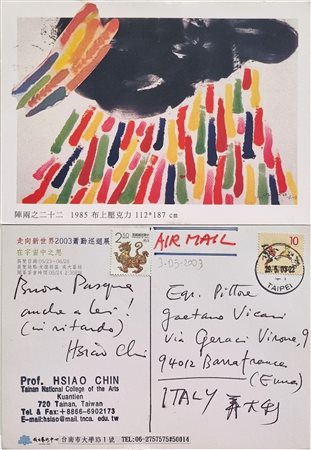 陣雨之二十二 1985 布上壓克力 112*187 cm
走向新世界2003蕭勤巡迴展
在宇宙中之思
2.50
10
TAIPEI
AIR MAIL
3-05-2003
Buona Pasqua
anche a Lei!
(in ritardo)
Hsiao Chin
Egr. Pittore
Gaetano Vicari
Via Geraci Virone, 9
94012 Barrafranca
(Enna)
ITALY 義大利
Prof. HSIAO CHIN
Tainan National College of the Arts
Kuantien
720 Tainan, Taiwan
Tel & Fax: +8866-6902173
E-mail:hsiao@mail.tnca. edu. tw
台南市大學路1號 TEL:06-2757575#50014